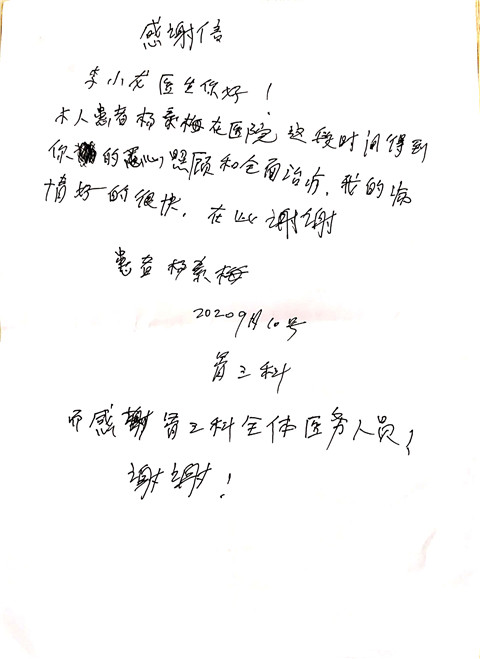 感谢信
李小龙医生你好！
本人患者杨素梅在医院这段时间得到
你的悉心照顾和全面治疗，我的病
情好的很快，在此谢谢
患者杨素梅
2020 9月10号
骨三科
而感谢骨三科全体医务人员，
谢谢！